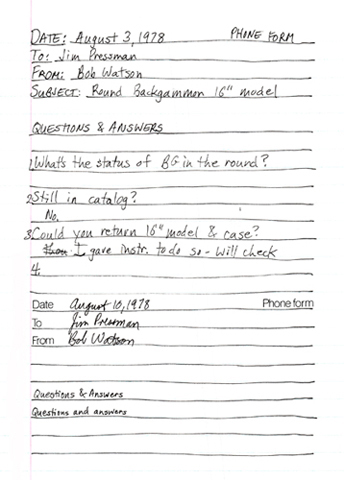 DATE: August 3, 1978 PHONE FORM
To: Jim Pressman
FROM: Bob Watson
SUBJECT: Round Backgammon 16" model
QUESTIONS & ANSWERS
1. What's the status of BG in the round?
2. Still in catalog?
No.
3. Could you return 16" model & case?
I gave instr. to do so - Will check
4.
Date August 10, 1978 Phone form
To Jim Pressman
From Bob Watson
Questions & Answers
Questions and answers